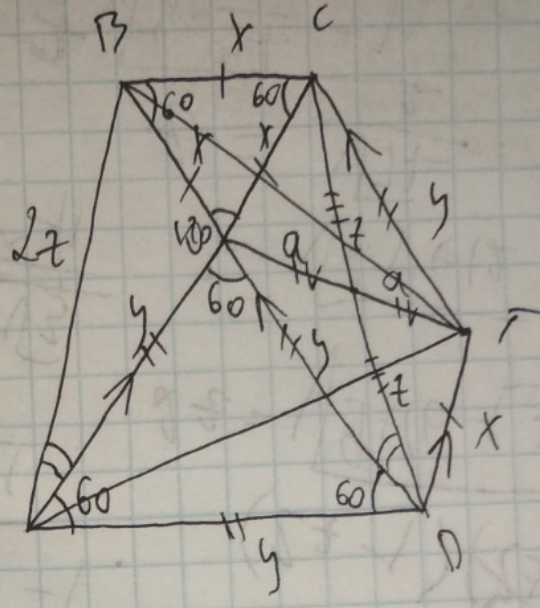 B x C
60 60
x x
2z 60 z y
a a
60
y y T
z x
60 60
y D